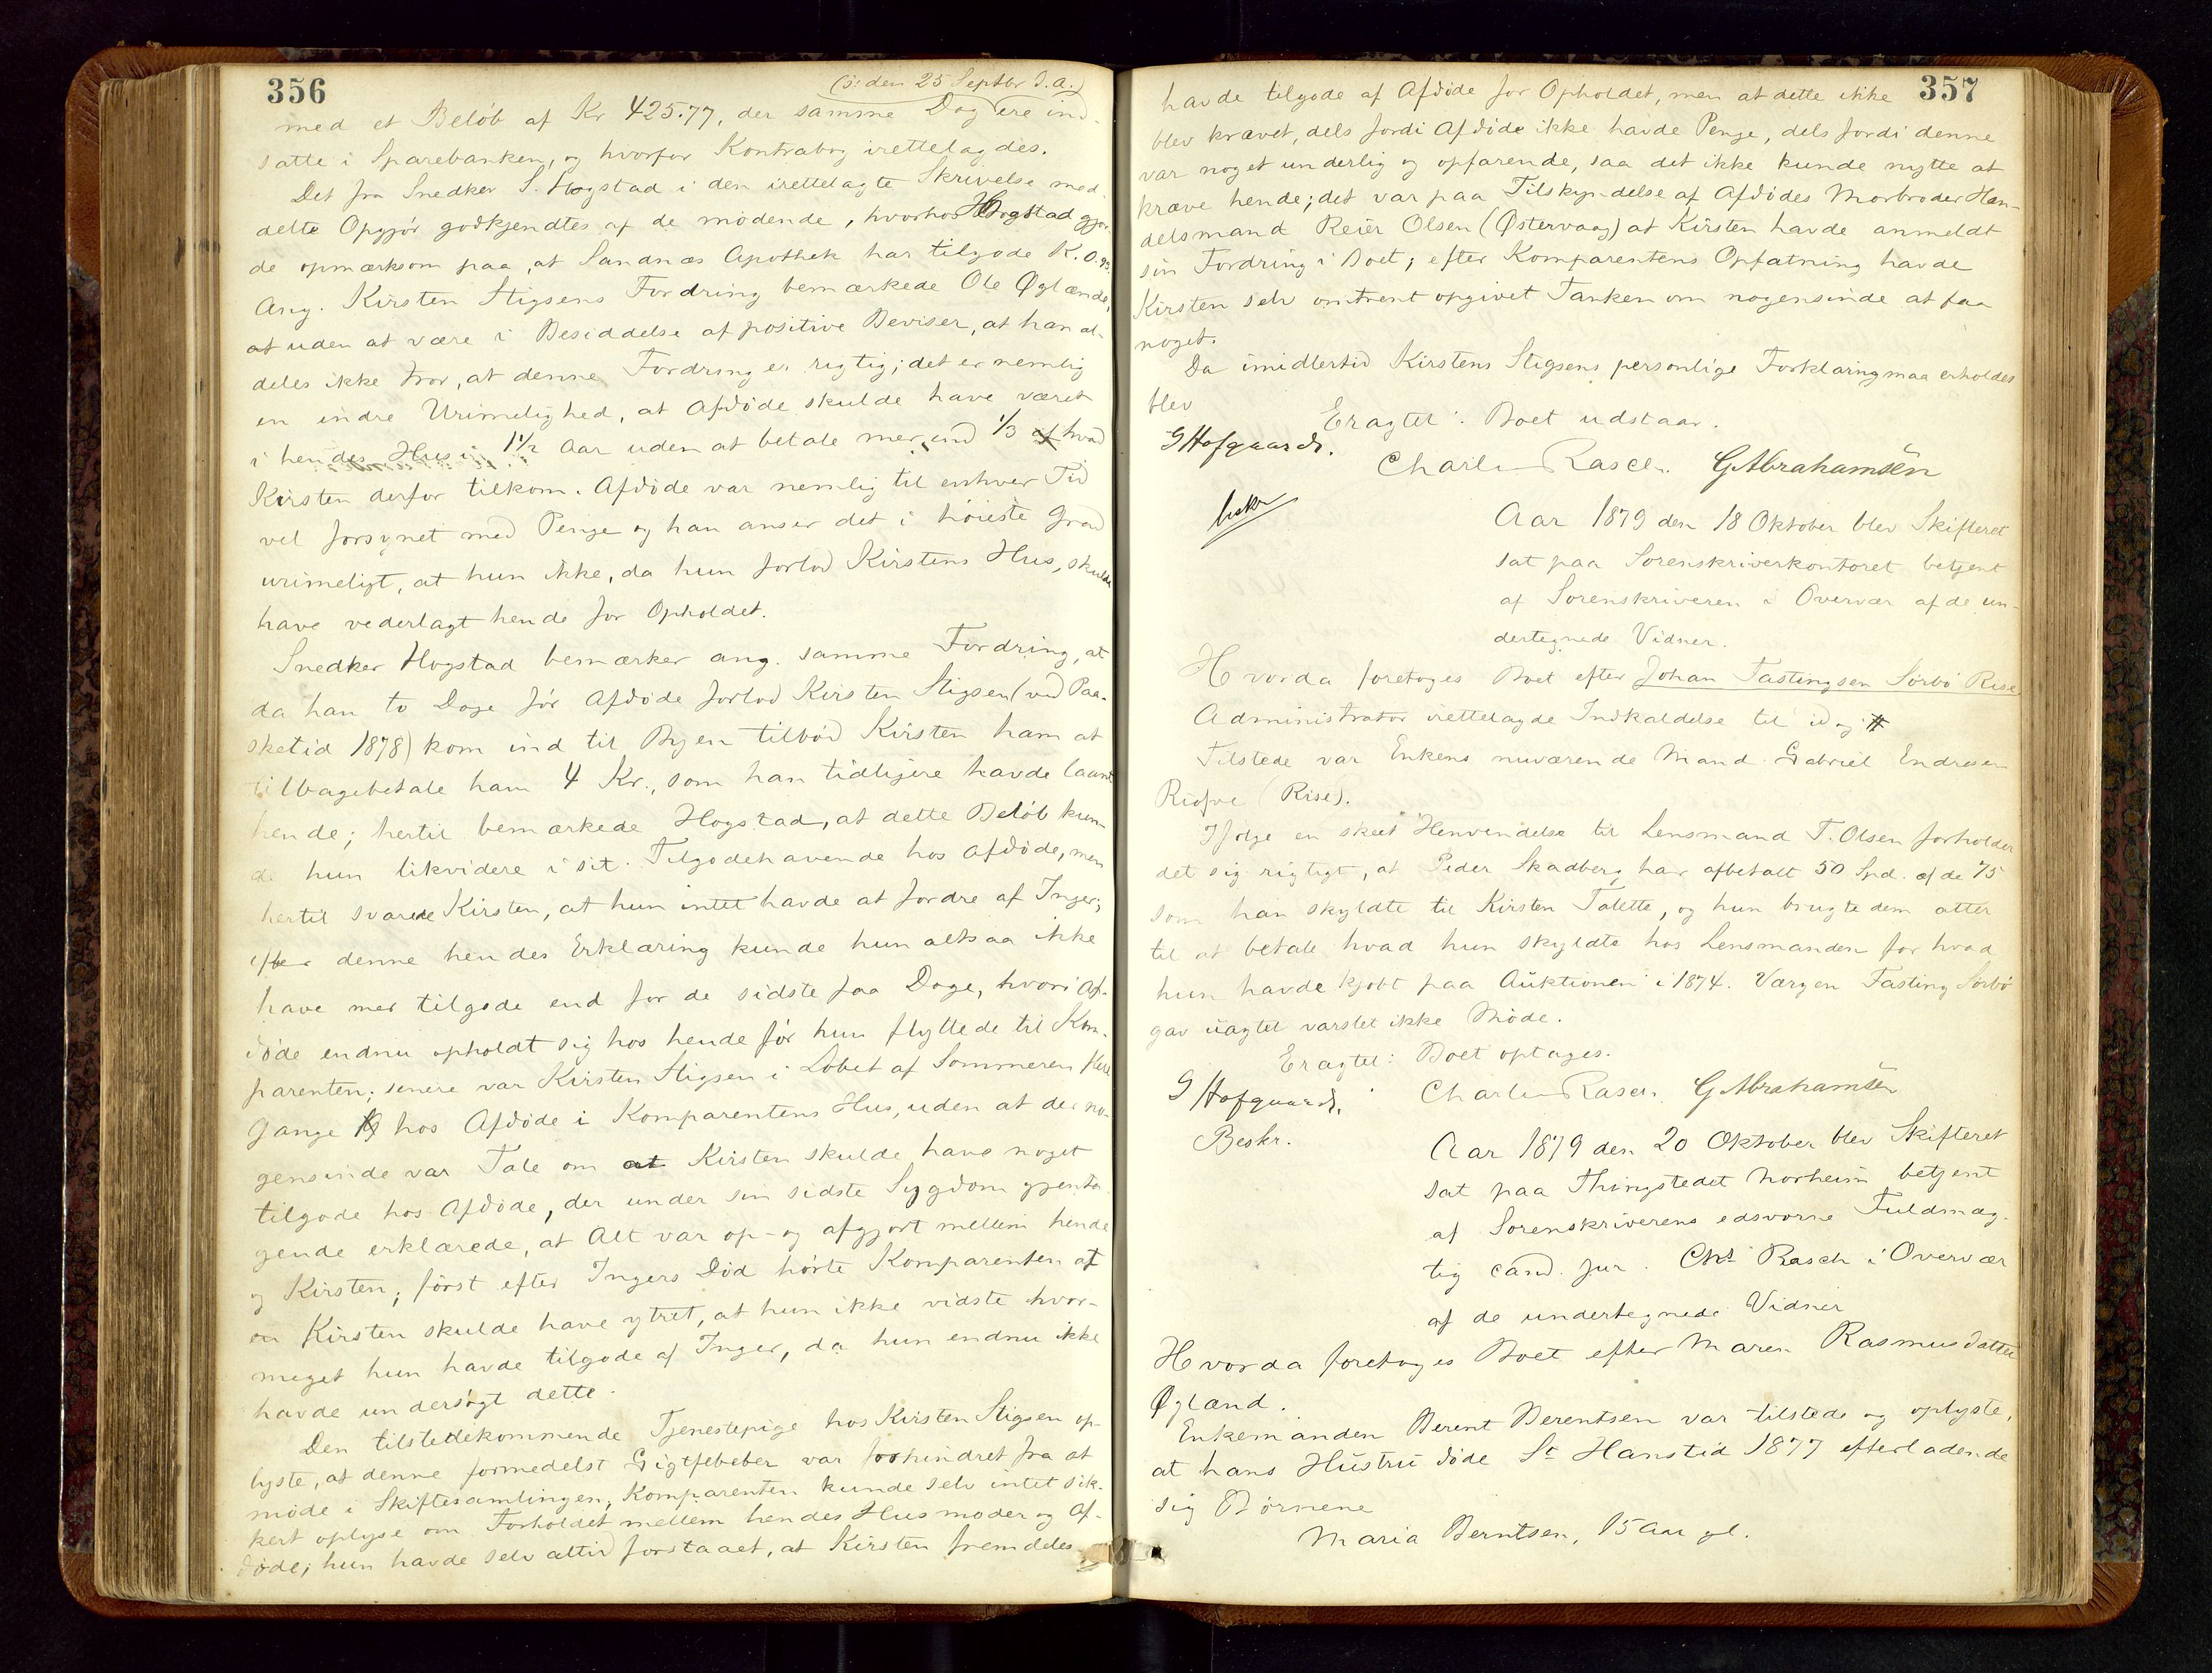 356
(ɔ: den 25 Septbr d. a.)
med et Beløb af Kr 425.77, der samme Dag ere ind-
satte i Sparebanken, og hvorfor Kontrabog irettelagdes.
Det fra Snedker S. Hogstad i den irettelagte Skrivelse med
dette Opgjør godkjendtes af de mødende, hvorhos Hogstad gjor-
de opmærksom paa, at Sandnæs Apothek har tilgode K. 0.93.
Ang. Kirsten Stigsens Fordring bemærkede Ole Øglænd,
at uden at være i Besiddelse af positive Beviser, at han al-
deles ikke tror, at denne Fordring er rigtig; det er nemlig
en indre Urimelighed, at Afdøde skulde have været
i hendes Hus i 1½ Aar uden at betale mer end 1/3 af hvad
Kirsten derfor tilkom. Afdøde var nemlig til enhver Tid
vel forsynet med Penge og han anser det i høieste Grad
urimeligt, at hun ikke, da hun forlod Kirstens Hus, skulde
have vederlagt hende for Opholdet.
Snedker Hogstad bemærker ang. samme Fordring, at
da han to Dage før Afdøde forlod Kirsten Stigsen (ved Paa-
sketid 1878) kom ind til Byen tilbød Kirsten ham at
tilbagebetale ham 4 Kr., som han tidligere havde laant
hende; hertil bemærkede Hogstad, at dette Beløb kun-
de hun likvidere i sit Tilgodehavende hos Afdøde, men
hertil svarede Kirsten, at hun intet havde at fordre af Inger;
efter denne hendes Erklæring kunde hun altsaa ikke
have mer tilgode end for de sidste faa Dage, hvori Af-
døde endnu opholdt sig hos hende før hun flyttede til Kom-
parenten; senere var Kirsten Stigsen i Løbet af Sommeren flere
Gange hos Afdøde i Komparentens Hus, uden at der no-
gensinde var Tale om at Kirsten skulde have noget
tilgode hos Afdøde, der under sin sidste Sygdom gjenta-
gende erklærede, at Alt var op- og afgjort mellem hende
og Kirsten; først efter Ingers Død hørte Komparenten at
Kirsten skulde have ytret, at hun ikke vidste hvor-
meget hun havde tilgode af Inger, da hun endnu ikke
havde undersøgt dette.
Den tilstedekommende Tjenestepige hos Kirsten Stigsen op-
lyste, at denne formedelst Gigtfebeber var forhindret fra at
møde i Skiftesamlingen; Komparenten kunde selv intet sik-
kert oplyse om Forholdet mellem hendes Husmoder og Af-
døde; hun havde selv altid forstaaet, at Kirsten fremdeles
357
havde tilgode af Afdøde for Opholdet, men at dette ikke
blev krævet, dels fordi Afdøde ikke havde Penge, dels fordi denne
var noget underlig og opfarende, saa det ikke kunde nytte at
kræve hende; det var paa Tilskyndelse af Afdødes Morbroder Han-
delsmand Reier Olsen (Østervaag) at Kirsten havde anmeldt
sin Fordring i Boet; efter Komparentens Opfatning havde
Kirsten selv omtrent opgivet Tanken om nogensinde at faa
noget.
Da imidlertid Kirstens Stigsens personlige Forklaring maa erholdes
blev
Eragtet: Boet udstaar.
G Hofgaard. Charles Rasch. G. Abrahamsen
beskr
Aar 1879 den 18 Oktober blev Skifteret
sat paa Sorenskriverkontoret betjent
af Sorenskriveren i Overvær af de un-
dertegnede Vidner.
Hvorda foretoges Boet efter Johan Tastingsen Sørbø Rise
Administrator irettelagde Indkaldelse til idag
Tilstede var Enkens nuværende Mand Gabriel Endresen
(Rise).
Ifølge en skeet Henvendelse til Lensmand T. Olsen forholder
det sig rigtigt, at Peder Skadberg har afbetalt 50 Spd. af de 75
som han skyldte til Kirsten Talette, og hun brugte dem atter
til at betale hvad hun skyldte hos Lensmanden for hvad
hun havde kjøbt paa Auktionen i 1874. Værgen Tasting Sørbø
gav uagtet varslet ikke Møde.
Eragtet: Boet optages.
G Hofgaard. Charles Rasch. G. Abrahamsen
Beskr.
Aar 1879 den 20 Oktober blev Skifteret
sat paa Thingstedet Norheim betjent
af Sorenskriverens edsvorne Fuldmæg-
tig cand. jur. Chs Rasch i Overvær
af de undertegnede Vidner
Hvorda foretoges Boet efter Maren Rasmusdatter
Øglænd.
Enkemanden Berent Berentsen var tilstede og oplyste,
at hans Hustru døde St Hanstid 1877 efterladende
sig Børnene
Maria Berntsen, 15 Aar gl.